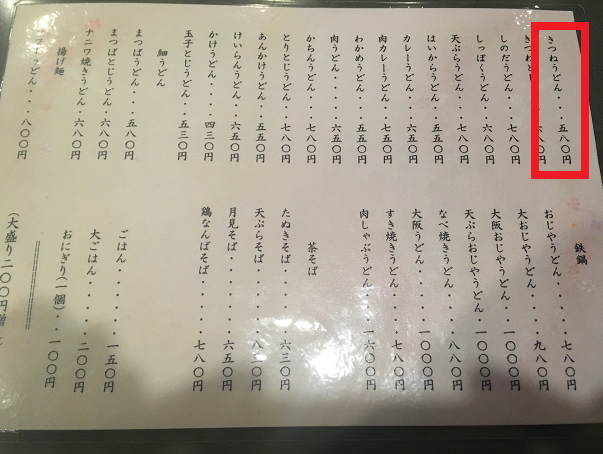 きつねうどん・・・五八〇円
きつねとじ・・・六八〇円
しのだうどん・・・七八〇円
しっぽくうどん・・・六八〇円
天ぷらうどん・・・七八〇円
はいからうどん・・・五五〇円
カレーうどん・・・六五〇円
肉カレーうどん・・・七八〇円
わかめうどん・・・五五〇円
肉うどん・・・・六五〇円
かちんうどん・・・七八〇円
とりとじうどん・・・七八〇円
あんかけうどん・・・五五〇円
けいらんうどん・・・六五〇円
かけうどん・・・・四三〇円
玉子とじうどん・・・五三〇円
細うどん
まつばうどん・・・五八〇円
まつばとじうどん・・六八〇円
ナニワ焼きうどん・・六八〇円
揚げ麺
うどん・・・八〇〇円
鉄鍋
おじやうどん・・・・・七八〇円
大おじやうどん・・・・九八〇円
大阪おじやうどん・・一〇〇〇円
天ぷらおじやうどん・一〇〇〇円
なべ焼きうどん・・・・八八〇円
大阪うどん・・・・・一〇〇〇円
すき焼きうどん・・・・七八〇円
肉しゃぶうどん・・・一六〇〇円
茶そば
たぬきそば・・・・・六三〇円
天ぷらそば・・・・・八二〇円
月見そば・・・・・・六五〇円
鶏なんばそば・・・・七八〇円
ごはん・・・・・・一五〇円
大ごはん・・・・・二〇〇円
おにぎり(一個)・・一〇〇円
(大盛り二〇〇円増